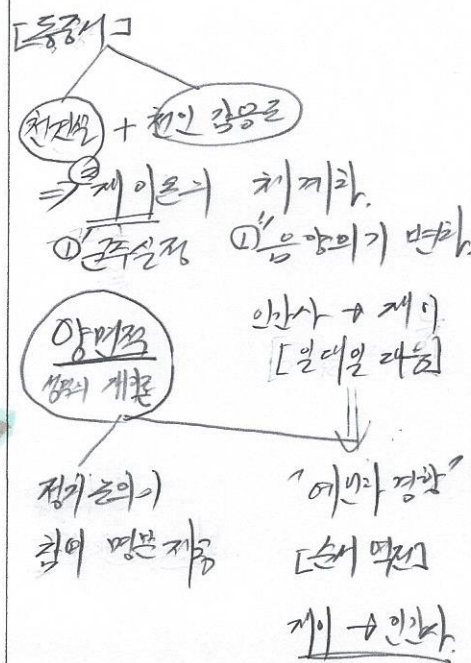 [동중서]
천견설 + 천인 감응론
⇒ ② 재이론의 체계화.
①" 군주실정 ①" 음양의 기 변화.
인간사 → 재이
[일대일 대응]
양면적
성격의 재이론
정치 논의에
참여 명분 제공
"예언화 경향"
[순서 역전]
재이 → 인간사.